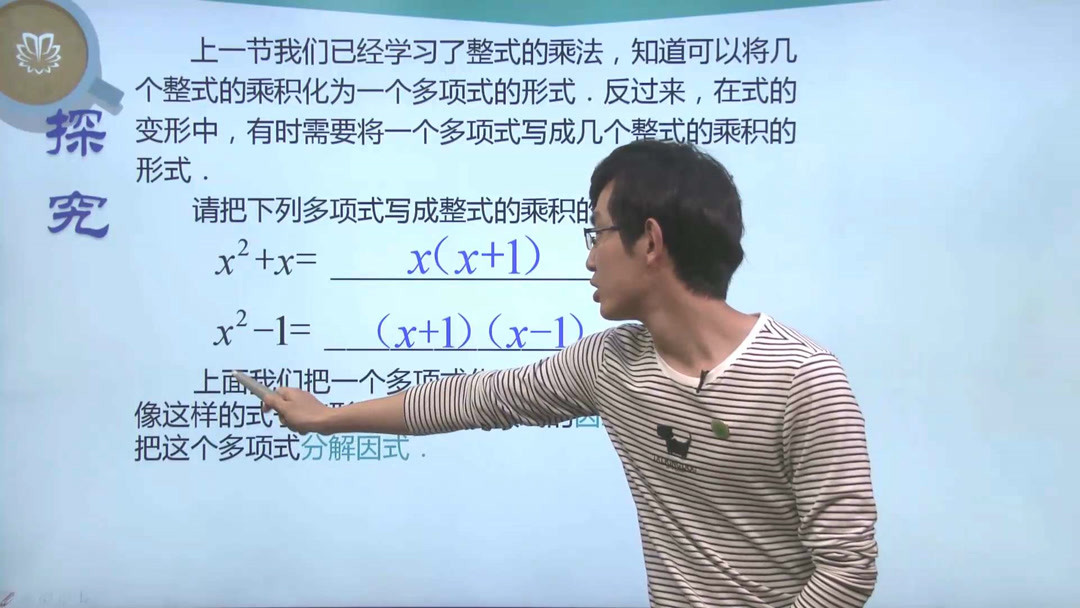 探究
上一节我们已经学习了整式的乘法，知道可以将几
个整式的乘积化为一个多项式的形式．反过来，在式的
变形中，有时需要将一个多项式写成几个整式的乘积的
形式．
请把下列多项式写成整式的乘积的
x²+x= x(x+1)
x²-1= (x+1)(x-1)
上面我们把一个多项式
像这样的式 的因
把这个多项式分解因式．